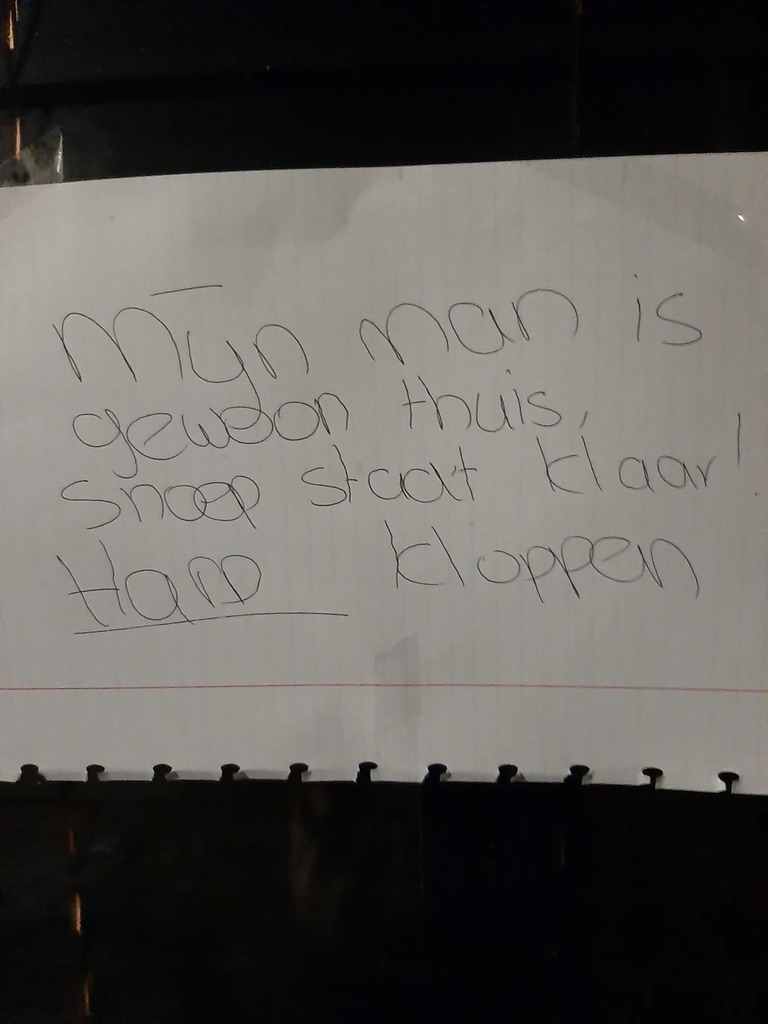 Mijn man is
gewoon thuis,
snoep staat klaar!
Hard kloppen